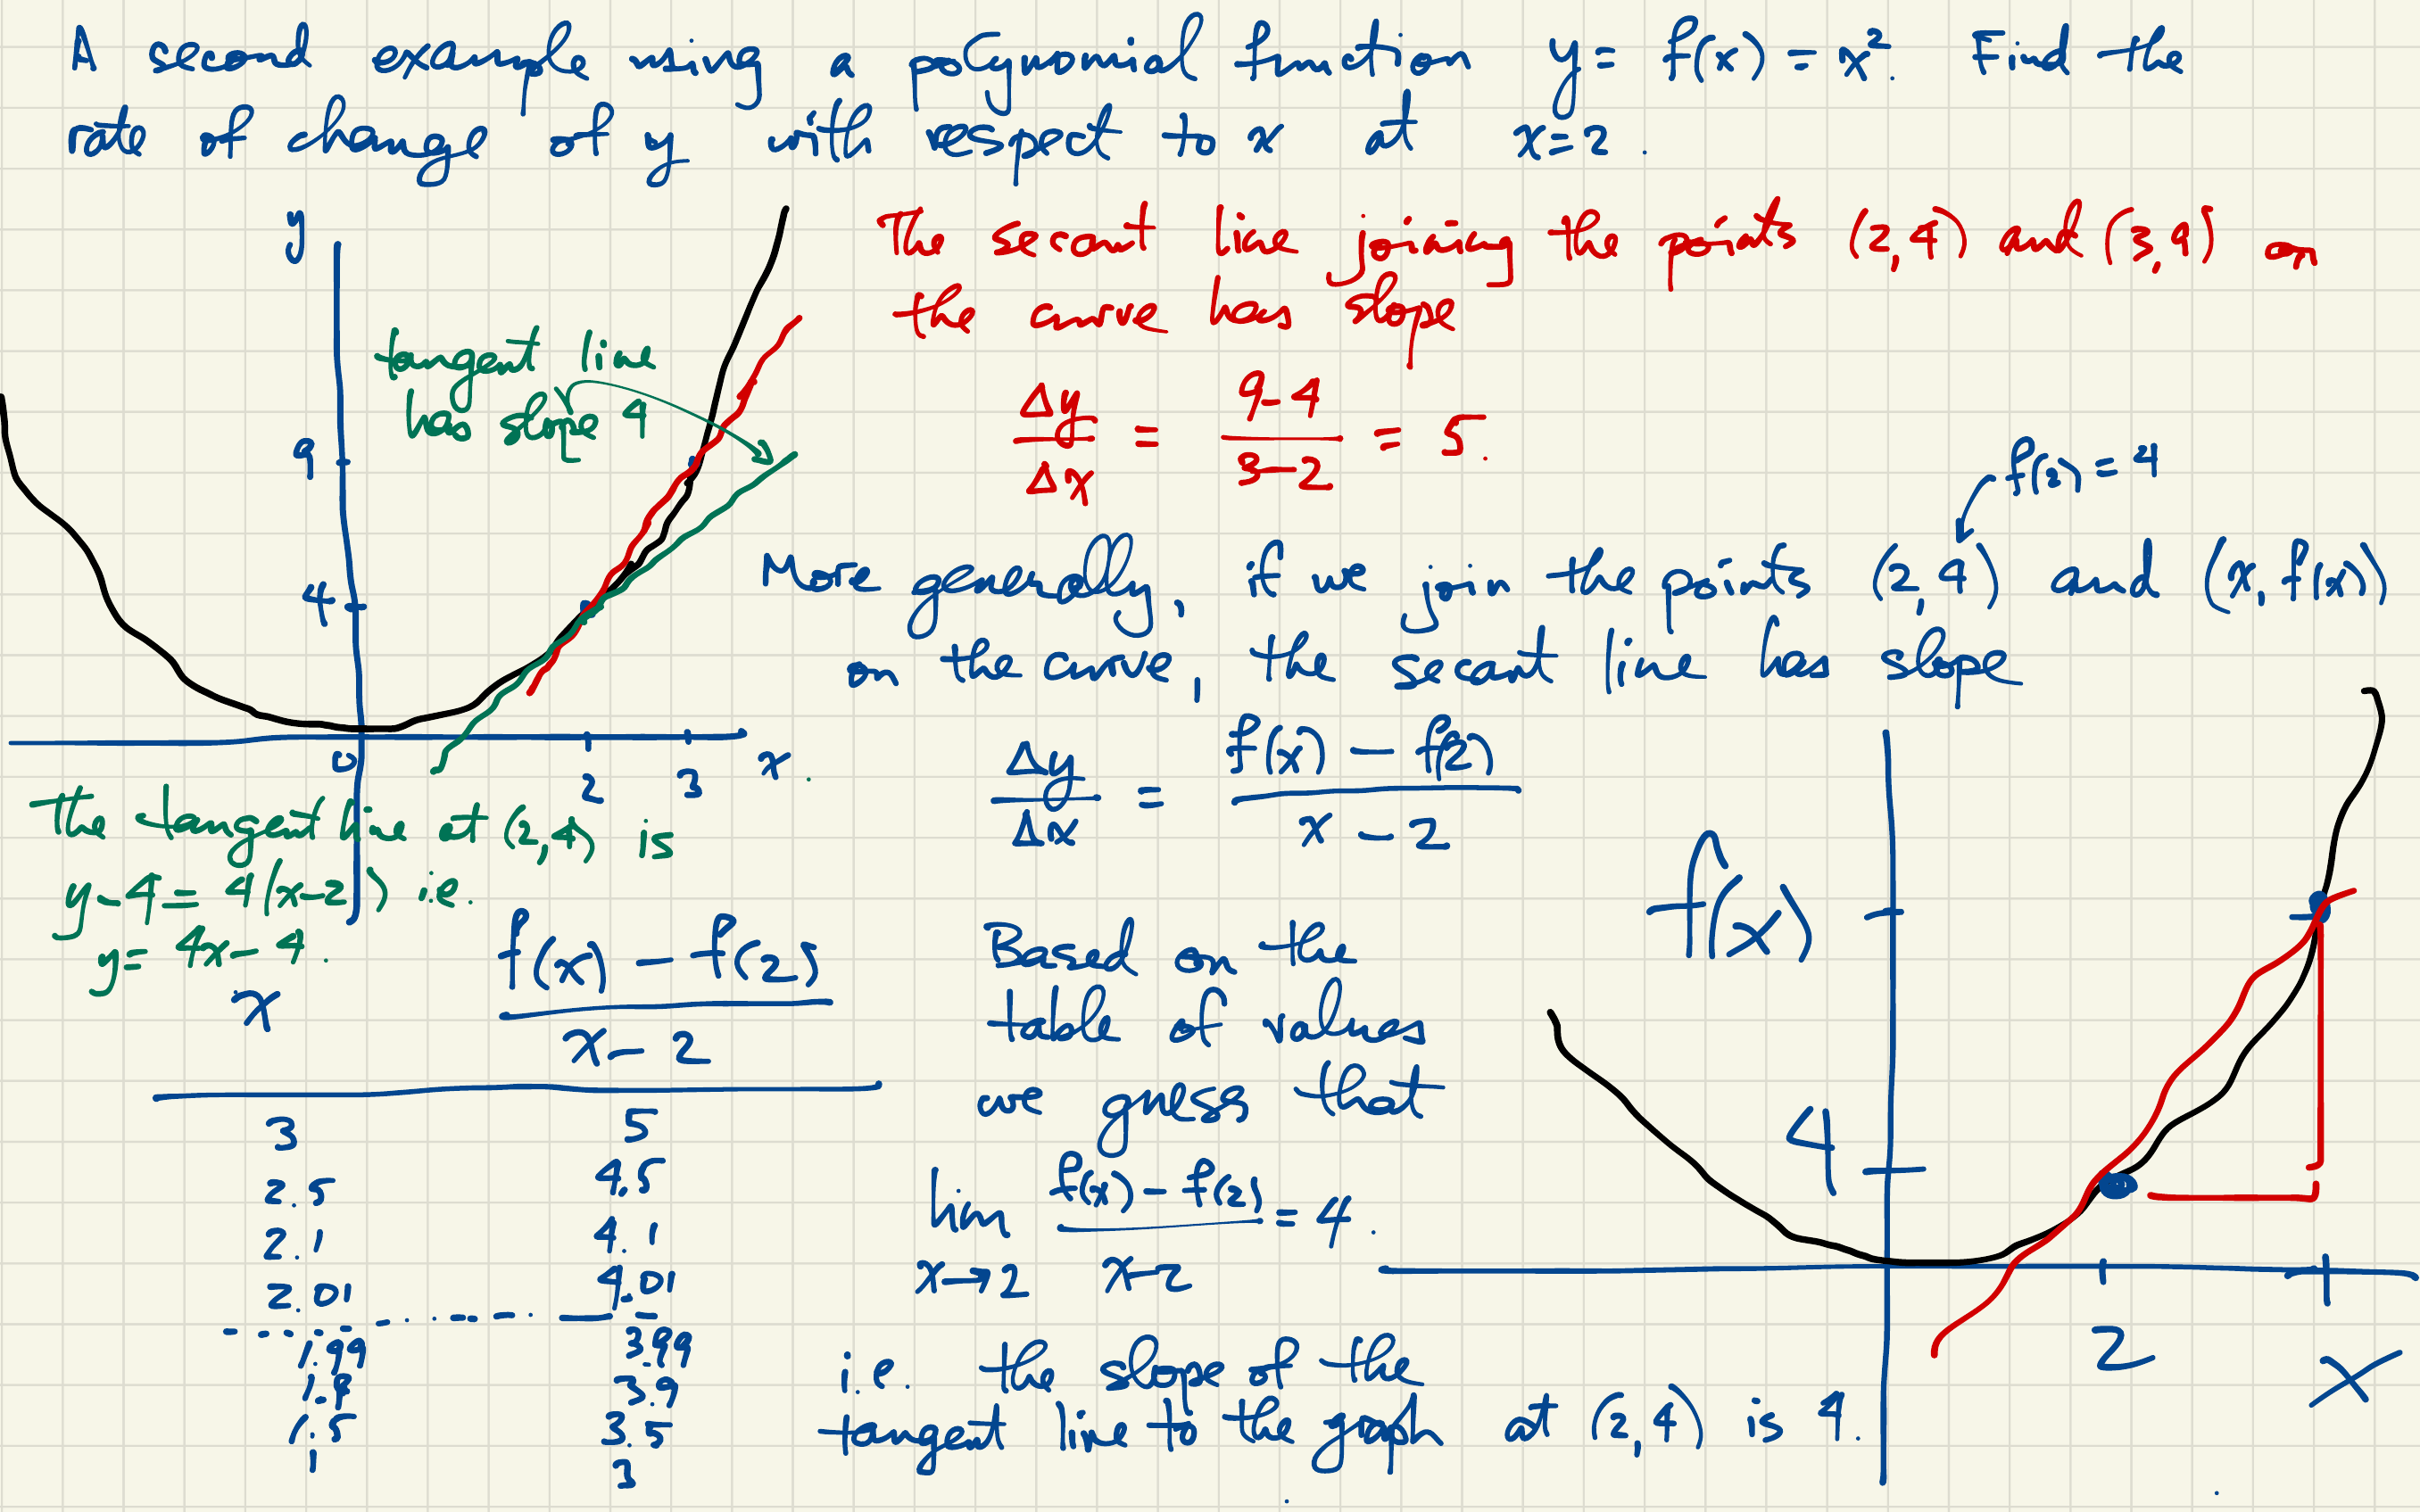 A second example using a polynomial function y = f(x) = x². Find the
rate of change of y with respect to x at x=2.
y
tangent line
has slope 4
9
4
0
2
3
x
The secant line joining the points (2,4) and (3,9) on
the curve has slope
Δy/Δx = (9-4)/(3-2) = 5.
f(2) = 4
More generally, if we join the points (2,4) and (x, f(x))
on the curve, the secant line has slope
Δy/Δx = (f(x) - f(2))/(x - 2)
The tangent line at (2,4) is
y-4 = 4(x-2) i.e.
y = 4x-4.
x (f(x) - f(2))/(x - 2)
3 5
2.5 4.5
2.1 4.1
2.01 4.01
1.99 3.99
1.9 3.9
1.5 3.5
1 3
Based on the
table of values
we guess that
lim x→2 (f(x) - f(2))/(x-2) = 4.
i.e. the slope of the
tangent line to the graph at (2,4) is 4.
f(x)
4
2
x